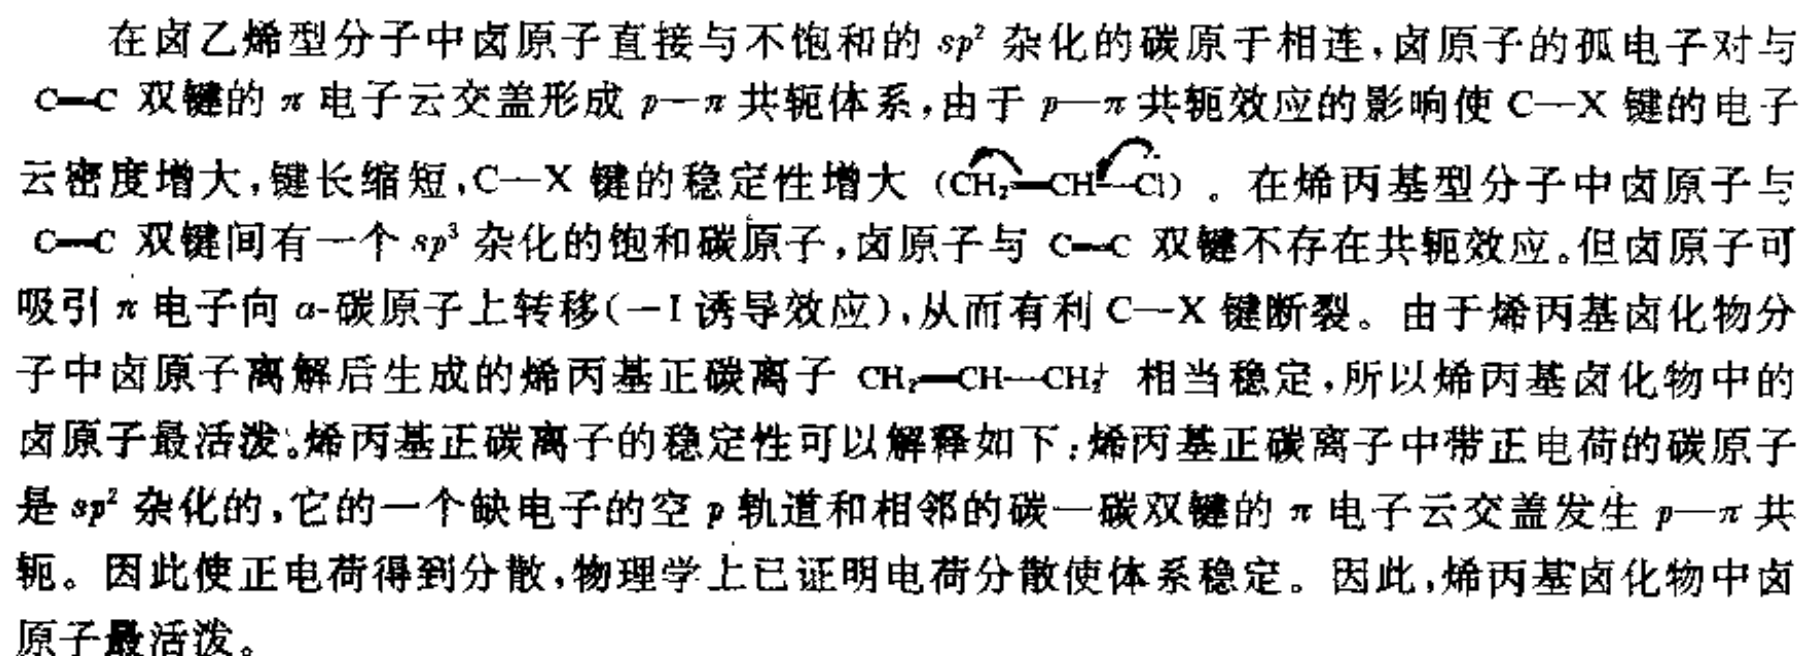 在卤乙烯型分子中卤原子直接与不饱和的 sp² 杂化的碳原子相连,卤原子的孤电子对与
C=C 双键的 π 电子云交盖形成 p—π 共轭体系,由于 p—π 共轭效应的影响使 C—X 键的电子
云密度增大,键长缩短,C—X 键的稳定性增大 (CH₂=CH—Cl) 。在烯丙基型分子中卤原子与
C=C 双键间有一个 sp³ 杂化的饱和碳原子,卤原子与 C=C 双键不存在共轭效应。但卤原子可
吸引 π 电子向 α-碳原子上转移(-I 诱导效应),从而有利 C—X 键断裂。由于烯丙基卤化物分
子中卤原子离解后生成的烯丙基正碳离子 CH₂=CH—CH₂⁺ 相当稳定,所以烯丙基卤化物中的
卤原子最活泼。烯丙基正碳离子的稳定性可以解释如下:烯丙基正碳离子中带正电荷的碳原子
是 sp² 杂化的,它的一个缺电子的空 p 轨道和相邻的碳—碳双键的 π 电子云交盖发生 p—π 共
轭。因此使正电荷得到分散,物理学上已证明电荷分散使体系稳定。因此,烯丙基卤化物中卤
原子最活泼。